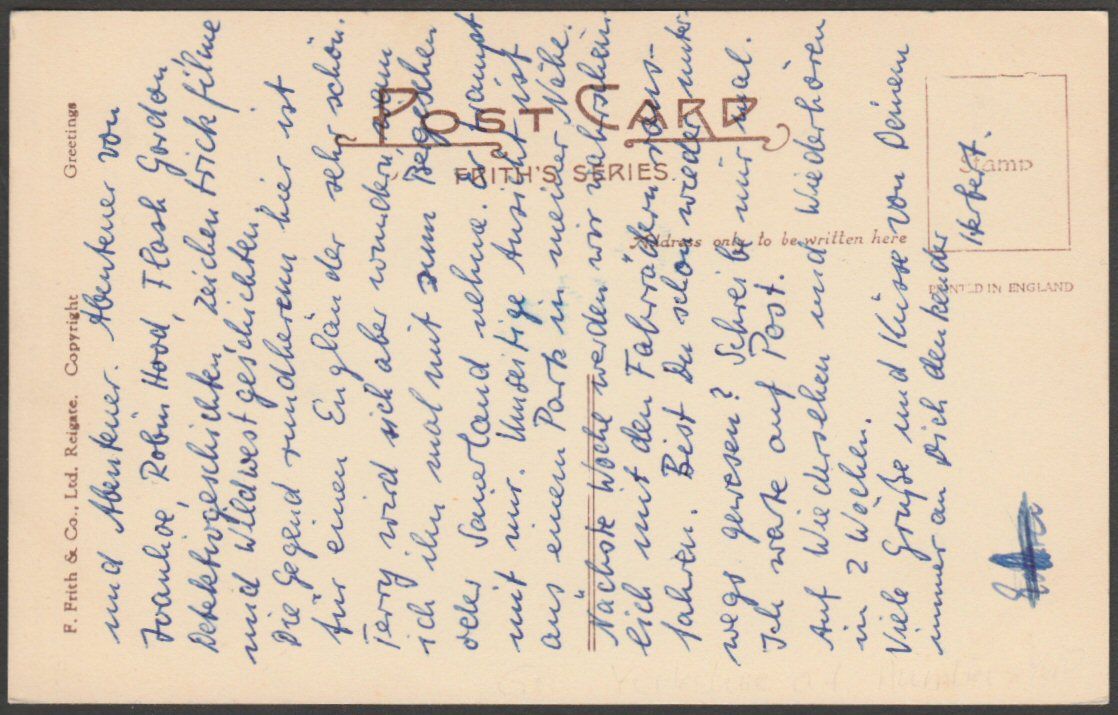 POST CARD
FRITH'S SERIES.
Address only to be written here
Stamp
PRINTED IN ENGLAND
F. Frith & Co., Ltd. Reigate. Copyright Greetings
und Abenteuer. Abenteuer von
Ivanhoe, Robin Hood, Flash Gordon
Detektivgeschichten, Zeichentrickfilme
und Wildwestgeschichten.
Die Gegend rundherum hier ist
für einen Engländer sehr schön.
Terry wird sich aber wundern wenn
ich ihn mal mit zum Bergischen
oder Sauerland nehme. Er kampt
mit mir. Umseitige Ansicht ist
aus einem Park in meiner Nähe.
Nächste Woche werden wir wahrschein-
lich mit den Fahrrädern raus-
fahren. Bist Du schon wieder unter-
wegs gewesen? Schreibe mir mal.
Ich warte auf Post.
Auf Wiedersehen und Wiederhören
in 2 Wochen.
Viele Grüße und Küsse von Deinem
immer an Dich denkender
Herbert.